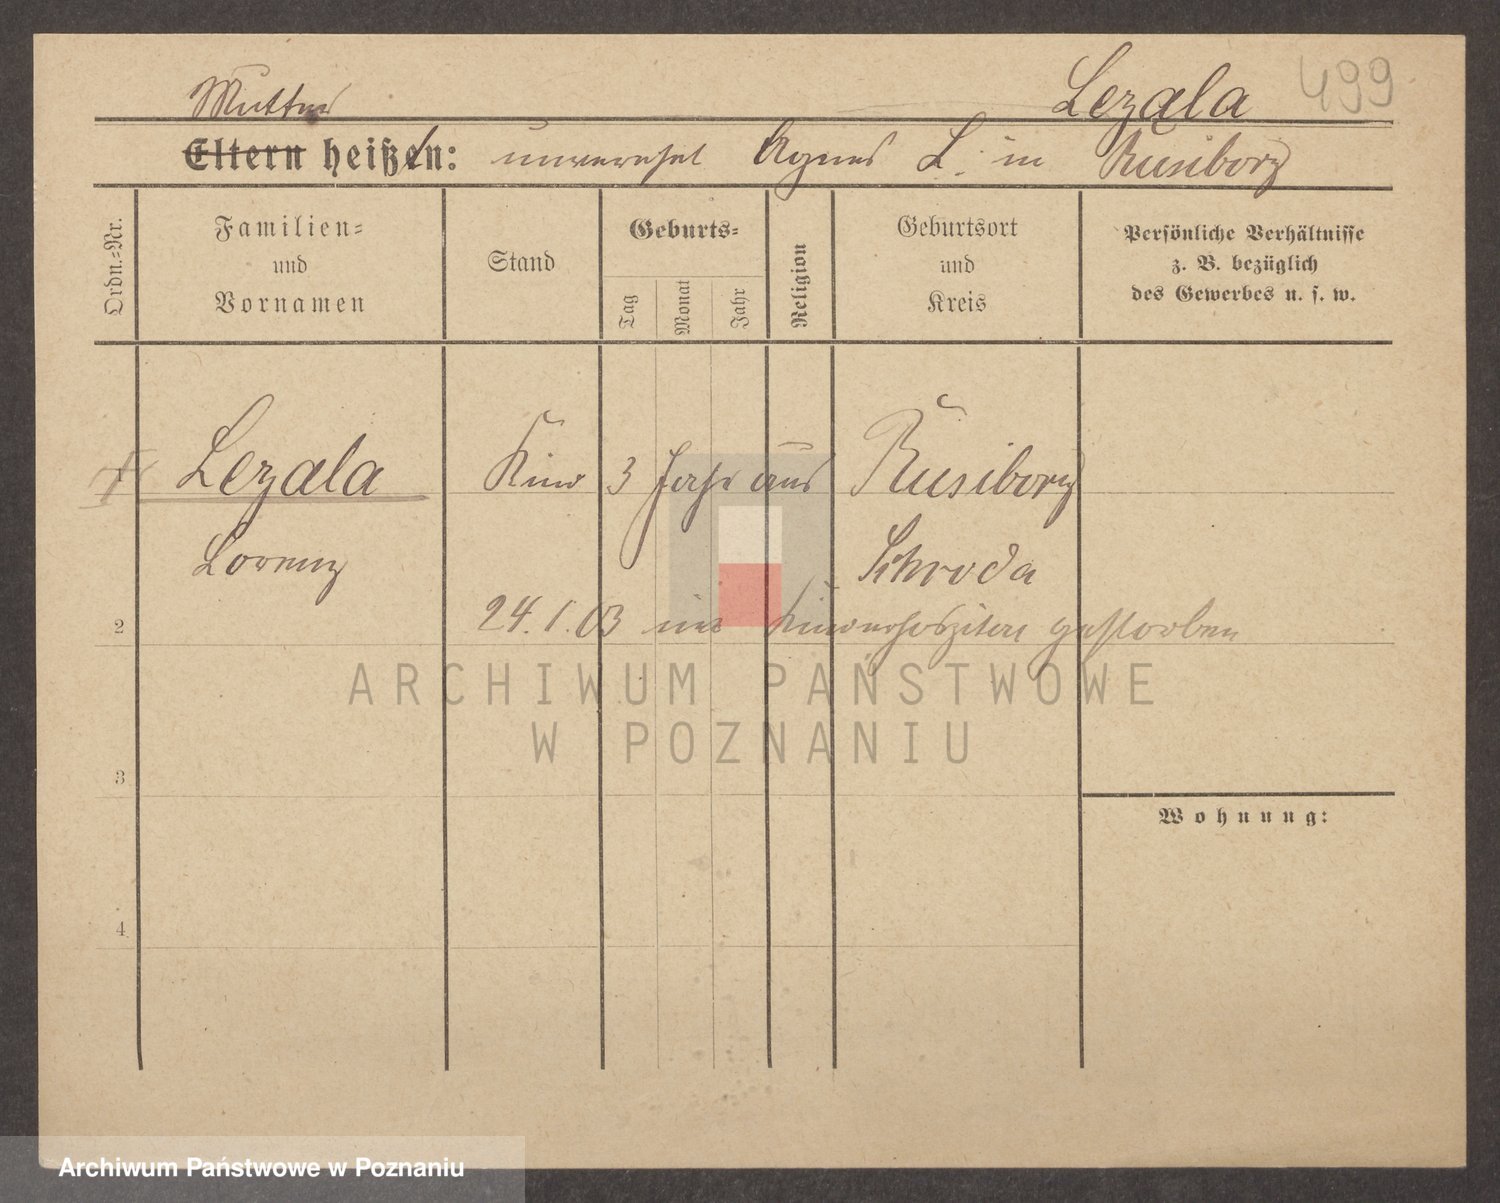 Lezala 499
Mutter
Eltern heißen: unverehel Agnes L. in Rusiborz
Ordn.-Nr.
Familien-
und
Vornamen
Stand
Geburts-
Tag
Monat
Jahr
Religion
Geburtsort
und
Kreis
Persönliche Verhältnisse
z. B. bezüglich
des Gewerbes u. s. w.
Lezala Kind 3 Jahr aus Rusiborz
Lorenz Schroda
24. 1. 03 im gestorben
2
3
4
Wohnung:
ARCHIWUM PAŃSTWOWE
W POZNANIU
Archiwum Państwowe w Poznaniu